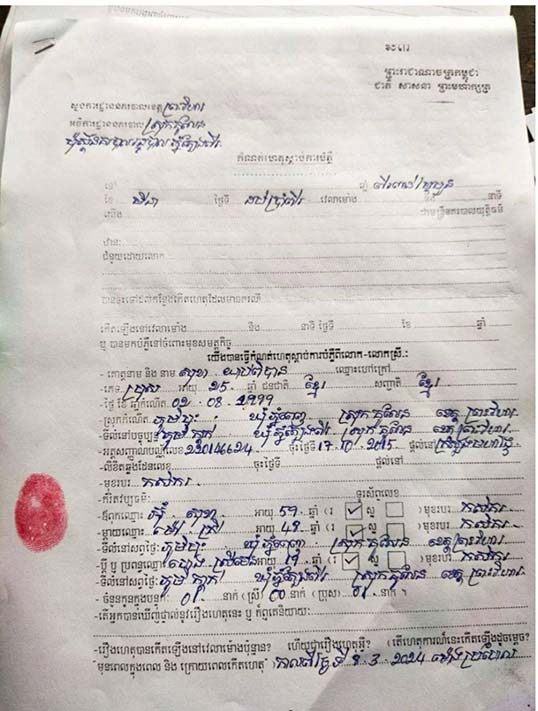 ព្រះរាជាណាចក្រកម្ពុជា
ជាតិ សាសនា ព្រះមហាក្សត្រ
ស្នងការដ្ឋាននគរបាលខេត្ត ព្រះវិហារ
អធិការដ្ឋាននគរបាល ស្រុកគូលែន
កំណត់ហេតុស្តាប់ការបំភ្លឺ
នៅ ឆ្នាំ ពីរពាន់ម្ភៃបួន
ខែ មីនា ថ្ងៃទី ដប់ប្រាំពីរ វេលាម៉ោង និង នាទី
យើង ជាមន្ត្រីនគរបាលយុត្តិធម៌
ឋានៈ
ជំនួយដោយលោក
បានចុះទៅដល់កន្លែងកើតហេតុដែលមានករណី
កើតឡើងនៅវេលាម៉ោង និង នាទី ថ្ងៃទី ខែ ឆ្នាំ
ឬ បានមកបំភ្លឺនៅចំពោះមុខសមត្ថកិច្ច
យើងបានធ្វើកំណត់ហេតុស្តាប់ការបំភ្លឺពីលោក-លោកស្រី:
- គោត្តនាម និង នាម ឈ្មោះហៅក្រៅ
- ភេទ ប្រុស អាយុ 25 ឆ្នាំ ជនជាតិ ខ្មែរ សញ្ជាតិ ខ្មែរ
- ថ្ងៃ ខែ ឆ្នាំកំណើត 02 - 08 - 1999
- ស្រុកកំណើត ភូមិ ឃុំ ស្រុក គូលែន ខេត្ត ព្រះវិហារ
- ទីលំនៅបច្ចុប្បន្ន ភូមិ ឃុំ ស្រុក គូលែន ខេត្ត ព្រះវិហារ
- អត្តសញ្ញាណប័ណ្ណលេខ ចុះថ្ងៃទី 17-10-2015 ផ្តល់នៅ ក្រសួងមហាផ្ទៃ
- លិខិតឆ្លងដែនលេខ ចុះថ្ងៃទី ផ្តល់នៅ
- មុខរបរ កសិករ
- កំរិតវប្បធម៌: ទូរស័ព្ទលេខ
- ឪពុកឈ្មោះ អាយុ 59 ឆ្នាំ (រ ✓ ស្ល ) មុខរបរ កសិករ
- ម្តាយឈ្មោះ អាយុ 48 ឆ្នាំ (រ ✓ ស្ល ) មុខរបរ កសិករ
- ទីលំនៅសព្វថ្ងៃ: ភូមិ ឃុំ ស្រុក គូលែន ខេត្ត ព្រះវិហារ
- ប្តី ឬ ប្រពន្ធឈ្មោះ អាយុ 19 ឆ្នាំ (រ ✓ ស្ល ) មុខរបរ កសិករ
- ទីលំនៅសព្វថ្ងៃ: ភូមិ ឃុំ ស្រុក គូលែន ខេត្ត ព្រះវិហារ
- ចំនួនកូនក្នុងបន្ទុក: 01 នាក់ (ស្រី) 00 នាក់ (ប្រុស) 01 នាក់ ។
- តើអ្នកបានឃើញផ្ទាល់នូវរឿងហេតុនេះ ឬ ក៏ឮគេនិយាយ:
- រឿងហេតុបានកើតឡើងនៅវេលាម៉ោងប៉ុន្មាន? ហើយជារឿងហេតុអ្វី? (តើហេតុការណ៍នេះកើតឡើងដូចម្តេច?
មុនពេលក្នុងពេល និង ក្រោយពេលកើតហេតុ ) កាលពីថ្ងៃទី 8-3-2024 ម៉ោងប្រហែល